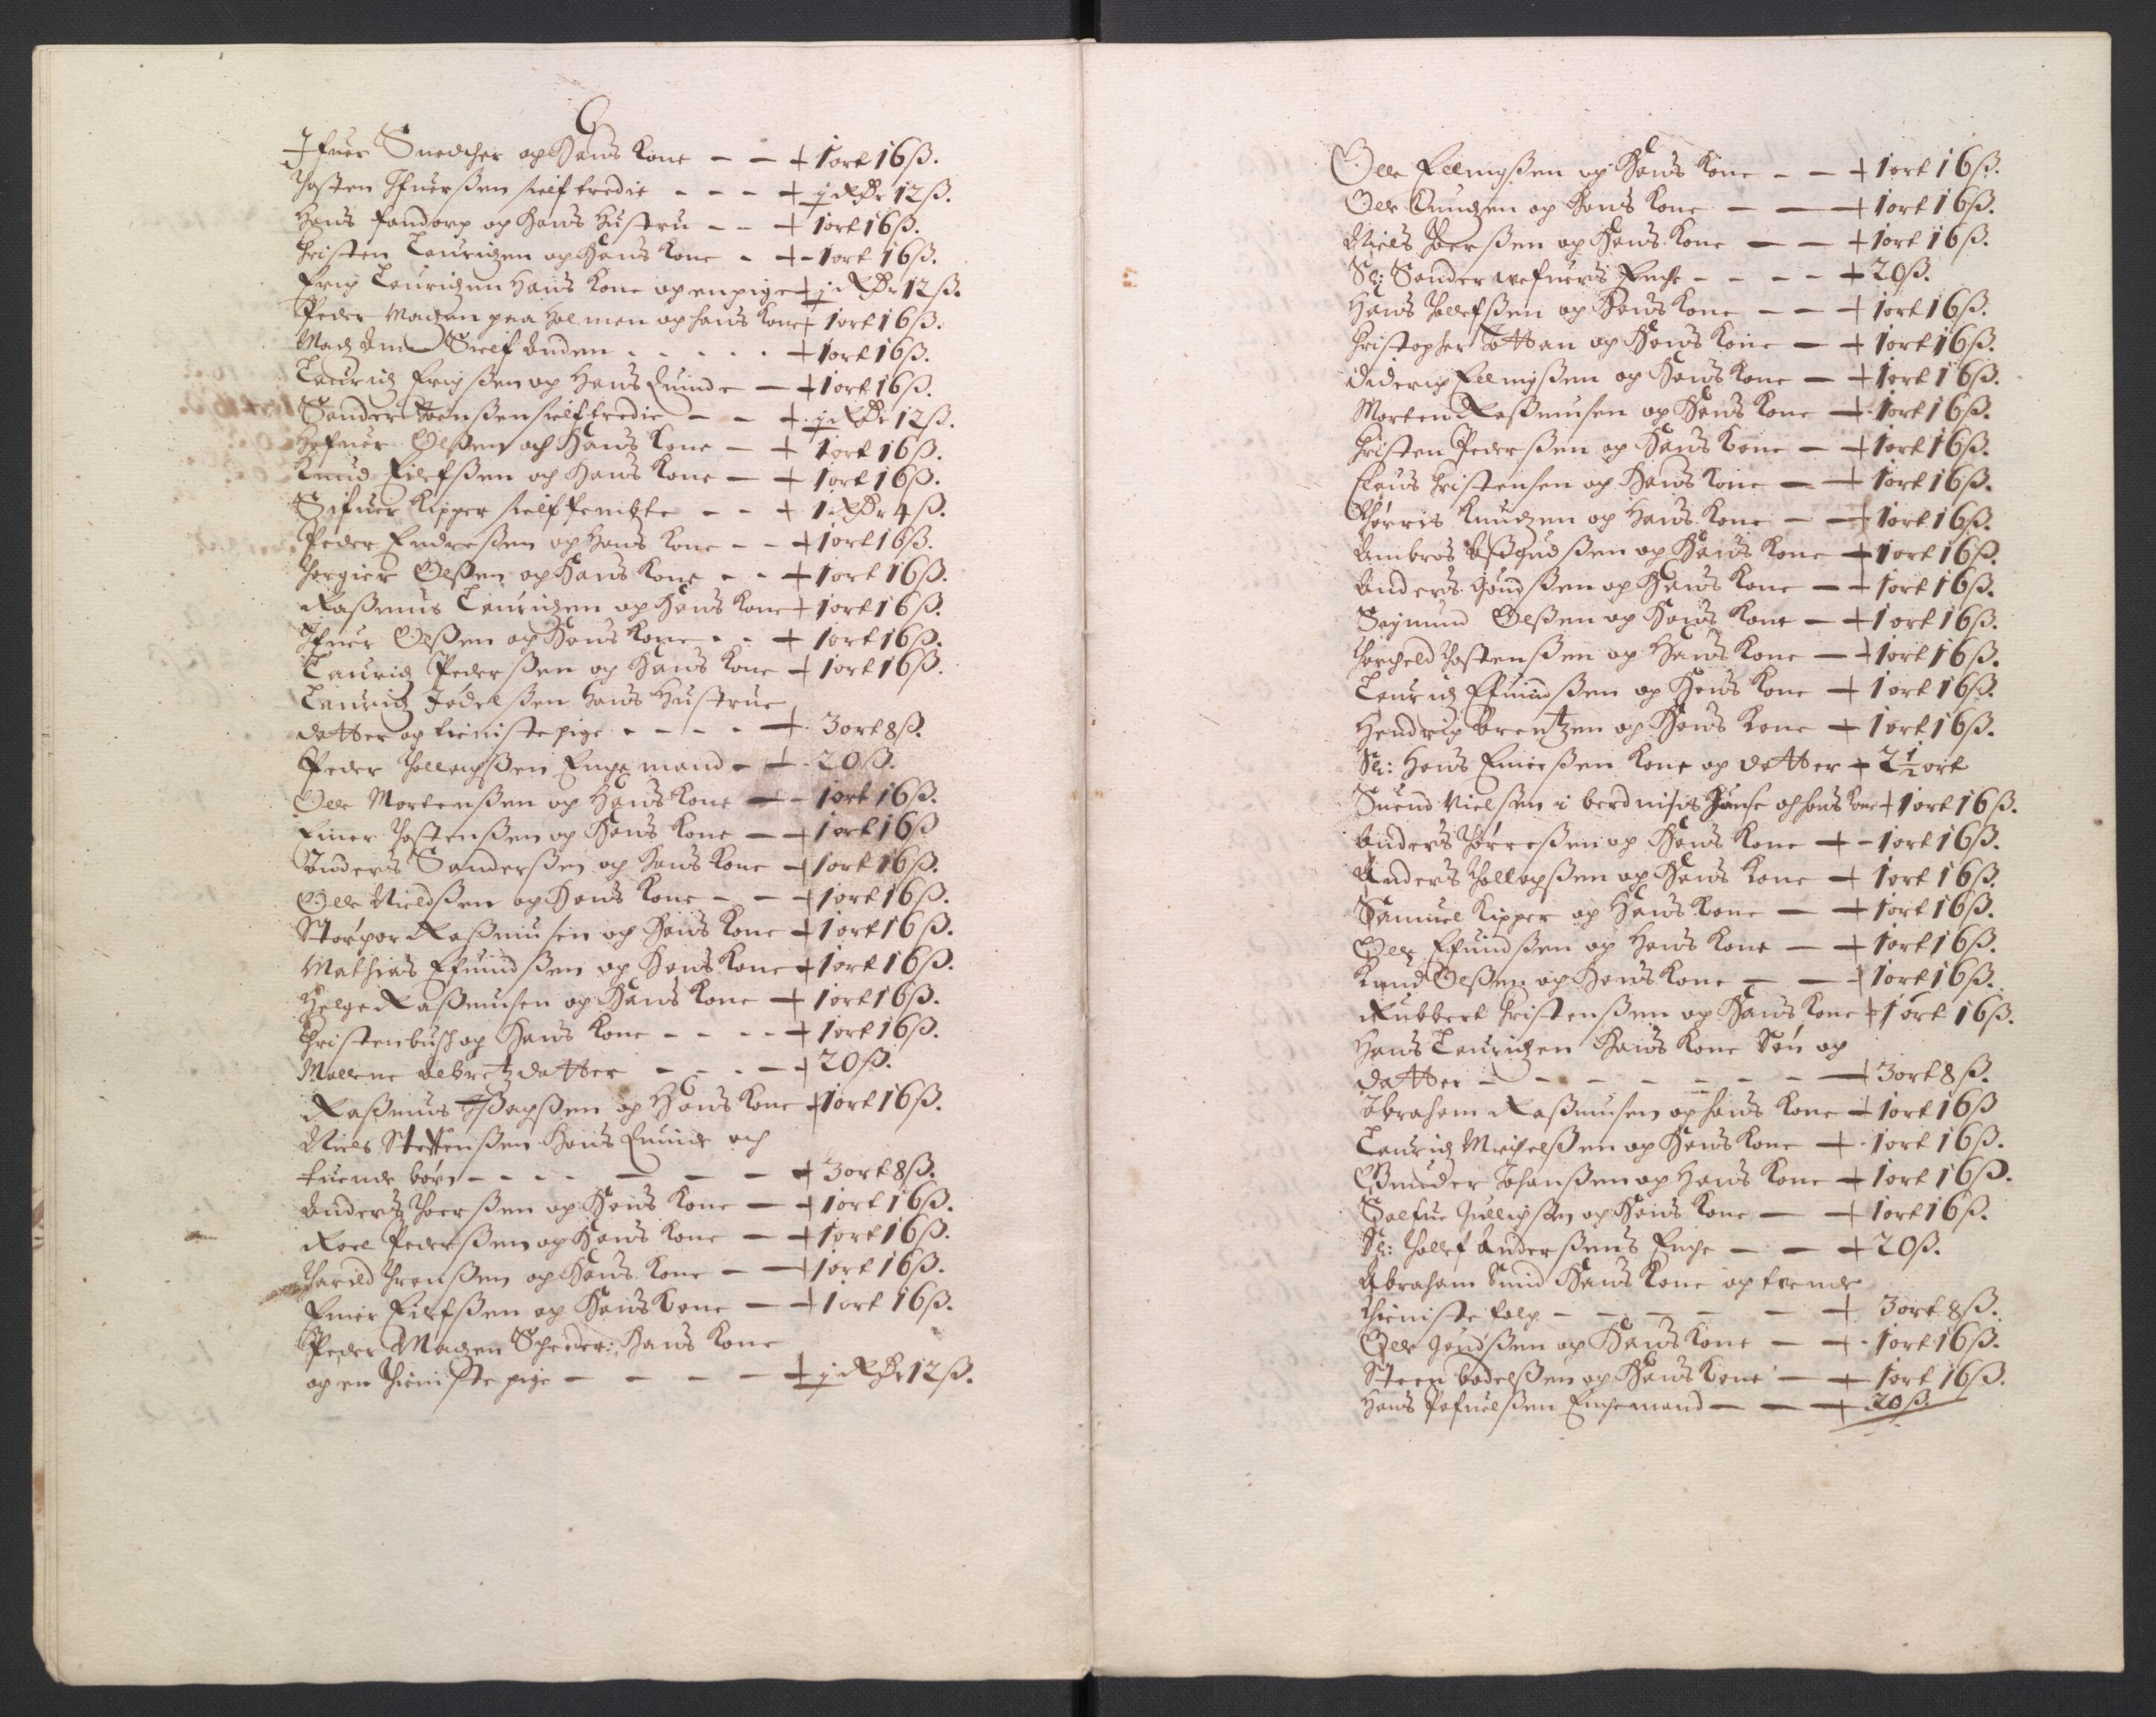 Ifuer Snedcher og Hans Kone - - + 1 ort 16 ß.
Tosten Ifuerßen self tredie - - - + ½ Rdr 12 ß.
Hans Fandorp og Hans Hustru - - + 1 ort 16 ß.
Christen Lauridzen og Hans Kone - + - 1 ort 16 ß.
Erich Lauridzen Hans Kone og en pige + ½ Rdr 12 ß.
Peder Madzen paa Holmen og hans Kone + 1 ort 16 ß.
Madz Self Anden - - - - - + 1 ort 16 ß.
Lauridz Erichßen og Hans Quinde - + 1 ort 16 ß.
Sander self tredie - - + ½ Rdr 12 ß.
Olßen och Hans Kone - + 1 ort 16 ß.
Knud Eilefßen och Hans Kone - + 1 ort 16 ß.
Sifuer Kipper self fembte - - + 1 Rdr 4 ß.
Peder Endreßen og Hans Kone - - + 1 ort 16 ß.
Thorgier Olßen og Hans Kone - - + 1 ort 16 ß.
Raßmus Lauridzen og Hans Kone + 1 ort 16 ß.
Ifuer Olßen og Hans Kone - - + 1 ort 16 ß.
Lauridz Pederßen og Hans Kone + 1 ort 16 ß.
Lauridz Hans Hustrue
datter og tieniste pige - - - - + 3 ort 8 ß.
Peder Tollachßen Enche mand - + - 20 ß.
Olle Mortenßen og Hans Kone + - 1 ort 16 ß.
Einer Tostenßen og Hans Kone - + 1 ort 16 ß
Anders Sanderßen og Hans Kone + 1 ort 16 ß.
Olle Nielßen og Hans Kone - - + 1 ort 16 ß.
Raßmusen og Hans Kone + 1 ort 16 ß.
Mathias Efuindßen og Hans Kone + 1 ort 16 ß.
Helge Raßmusen og Hans Kone + 1 ort 16 ß.
Christen busch og Hans Kone - - - - + 1 ort 16 ß.
Mallene Albretz datter - - - - + 20 ß.
Raßmus og Hans Kone + 1 ort 16 ß.
Niels Steffenßen Hans Quinde och
tuende børn - - - - - - + 3 ort 8 ß.
Anders Thoerßen og Hans Kone - + 1 ort 16 ß.
Roel Pederßen og Hans Kone - + 1 ort 16 ß.
Tharild og Hans Kone - + 1 ort 16 ß.
Einer Eilefßen og Hans Kone - + 1 ort 16 ß.
Peder Madzen Schreder: Hans Kone
og en thieniste pige - - - - + ½ Rdr 12 ß.
Olle Ellingßen og Hans Kone - - + 1 ort 16 ß.
Olle og Hans Kone - - + 1 ort 16 ß.
Niels Thoerßen og Hans Kone - - + 1 ort 16 ß.
Sl: Sander wefuers Enche - - - - + 20 ß.
Hans Tollefßen og Hans Kone - - + 1 ort 16 ß.
Christopher og Hans Kone - + 1 ort 16 ß.
Diderich Ellingßen og Hans Kone - + 1 ort 16 ß.
Morten Raßmusen og Hans Kone + 1 ort 16 ß.
Christen Pederßen og Hans Kone - + 1 ort 16 ß.
Claus Christensen og Hans Kone - + 1 ort 16 ß.
Thørris Knudzen og Hans Kone - + 1 ort 16 ß.
Ambros og Hans Kone + 1 ort 16 ß.
Anders og Hans Kone - + 1 ort 16 ß.
Sejmund Olßen og Hans Kone - + 1 ort 16 ß.
Thorcheld Tostenßen og Hans Kone - + 1 ort 16 ß.
Lauridz Efuindßen og Hans Kone + 1 ort 16 ß.
Hendrich brentzen og Hans Kone + 1 ort 16 ß.
Sl: Hans Einerßen Kone og datter + 2 ½ ort
Suend Nielßen i och hans Kone + 1 ort 16 ß.
Anders Thørreßen og Hans Kone + - 1 ort 16 ß.
Anders Tollagßen og Hans Kone + 1 ort 16 ß.
Samuel Kipper og Hans Kone - + 1 ort 16 ß.
Olle Efuindßen og Hans Kone - + 1 ort 16 ß.
Knud Olßen og Hans Kone - - + 1 ort 16 ß.
Rubbert Christenßen og Hans Kone + 1 ort 16 ß.
Hans Lauridzen Hans Kone Søn og
datter - - - - - - - + 3 ort 8 ß.
Abraham Raßmusen og hans Kone + 1 ort 16 ß
Lauridz Michelßen og Hans Kone + 1 ort 16 ß.
Gunder Johanßen og Hans Kone + 1 ort 16 ß.
Salfue og Hans Kone - + 1 ort 16 ß.
Sl: Tollef Anderßens Enche - - + 20 ß.
Abraham Smid Hans Kone og tvende
thieniste folch - - - - - + 3 ort 8 ß.
Olle og Hans Kone - + 1 ort 16 ß.
Steen bodelßen og Hans Kone - + 1 ort 16 ß.
Hans Pofuelßen Enchemand - - + 20 ß.